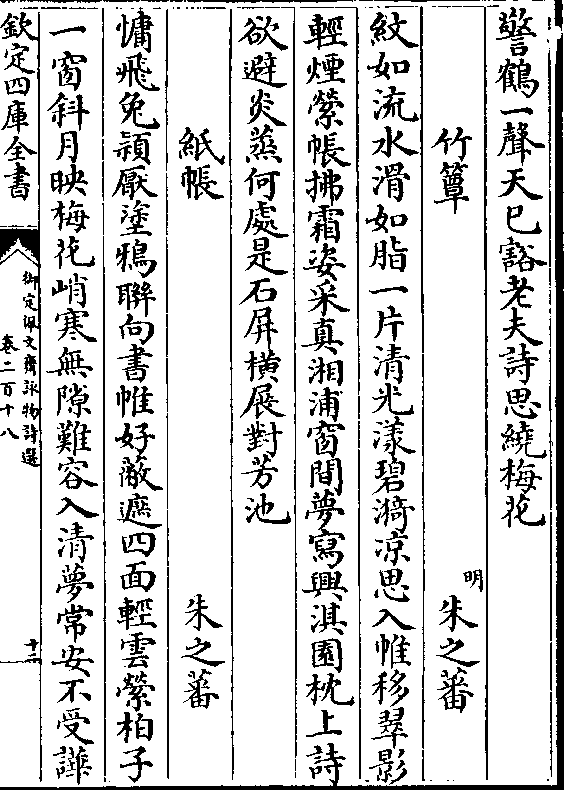 警鶴一聲天已豁老夫詩思繞梅花
竹簟　明朱之蕃
紋如流水滑如脂一片清光漾碧漪凉思入帷移翠影
輕煙縈帳拂霜姿采真湘浦窗間夢寫興淇園枕上詩
欲避炎蒸何處是石屏横展對芳池
紙帳　朱之蕃
慵飛兔穎厭塗鴉聨向書帷好蔽遮四面輕雲縈柏子
一窗斜月映梅花峭寒無隙難容入清夢常安不受譁
欽定四庫全書
御定佩文齋詠物詩選
卷二百十八
十二